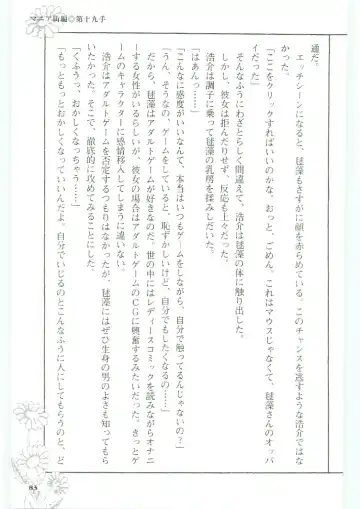 第十九手
通だ。
エッチシーンになると、毬藻もさすがに顔を赤らめている。このチャンスを逃すような浩介ではな
かった。
「ここをクリックすればいいのかな。おっと、ごめん。これはマウスじゃなくて、毬藻さんのオッパ
イだった」
そんなふうにわざとらしく間違えて、浩介は毬藻の体に触り出した。
しかし、彼女は拒んだりせず、反応も上々だった。
浩介は調子に乗って毬藻の乳房を揉みしだいた。
「はあんっ……」
「こんなに感度がいいなんて、本当はいつもゲームをしながら、自分で触ってるんじゃないの？」
「うん、そうなの。ゲームをしていると、恥ずかしいけど、自分でもしたくなるの……」
だから、毬藻はアダルトゲームが好きなのだ。世の中にはレディースコミックを読みながらオナニ
ーする女性がいるらしいが、彼女の場合はアダルトゲームのＣＧに興奮するみたいだった。きっとゲ
ームのキャラクターに感情移入してしまうに違いない。
浩介はアダルトゲームを否定するつもりはなかったが、毬藻にはぜひ生身の男のよさも知っても
いたかった。そこで、徹底的に攻めてみることにした。
「くふうっ、おかしくなっちゃう……」
「もっともっとおかしくなっていいんだよ。自分でいじるのとこんなふうに人にしてもらうのと、ど
83